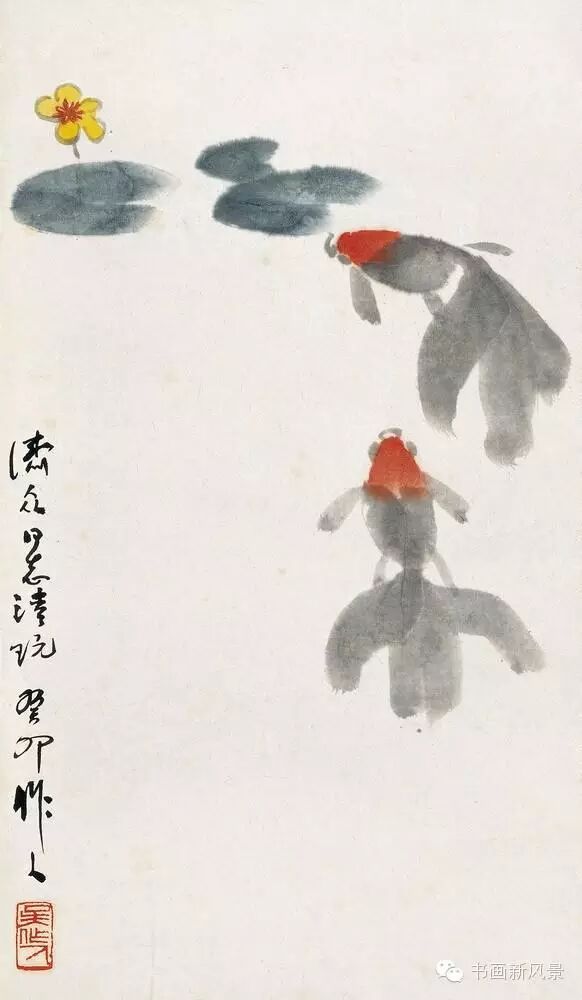 濟众同志清玩 癸卯 作人
吴作人
书画新风景